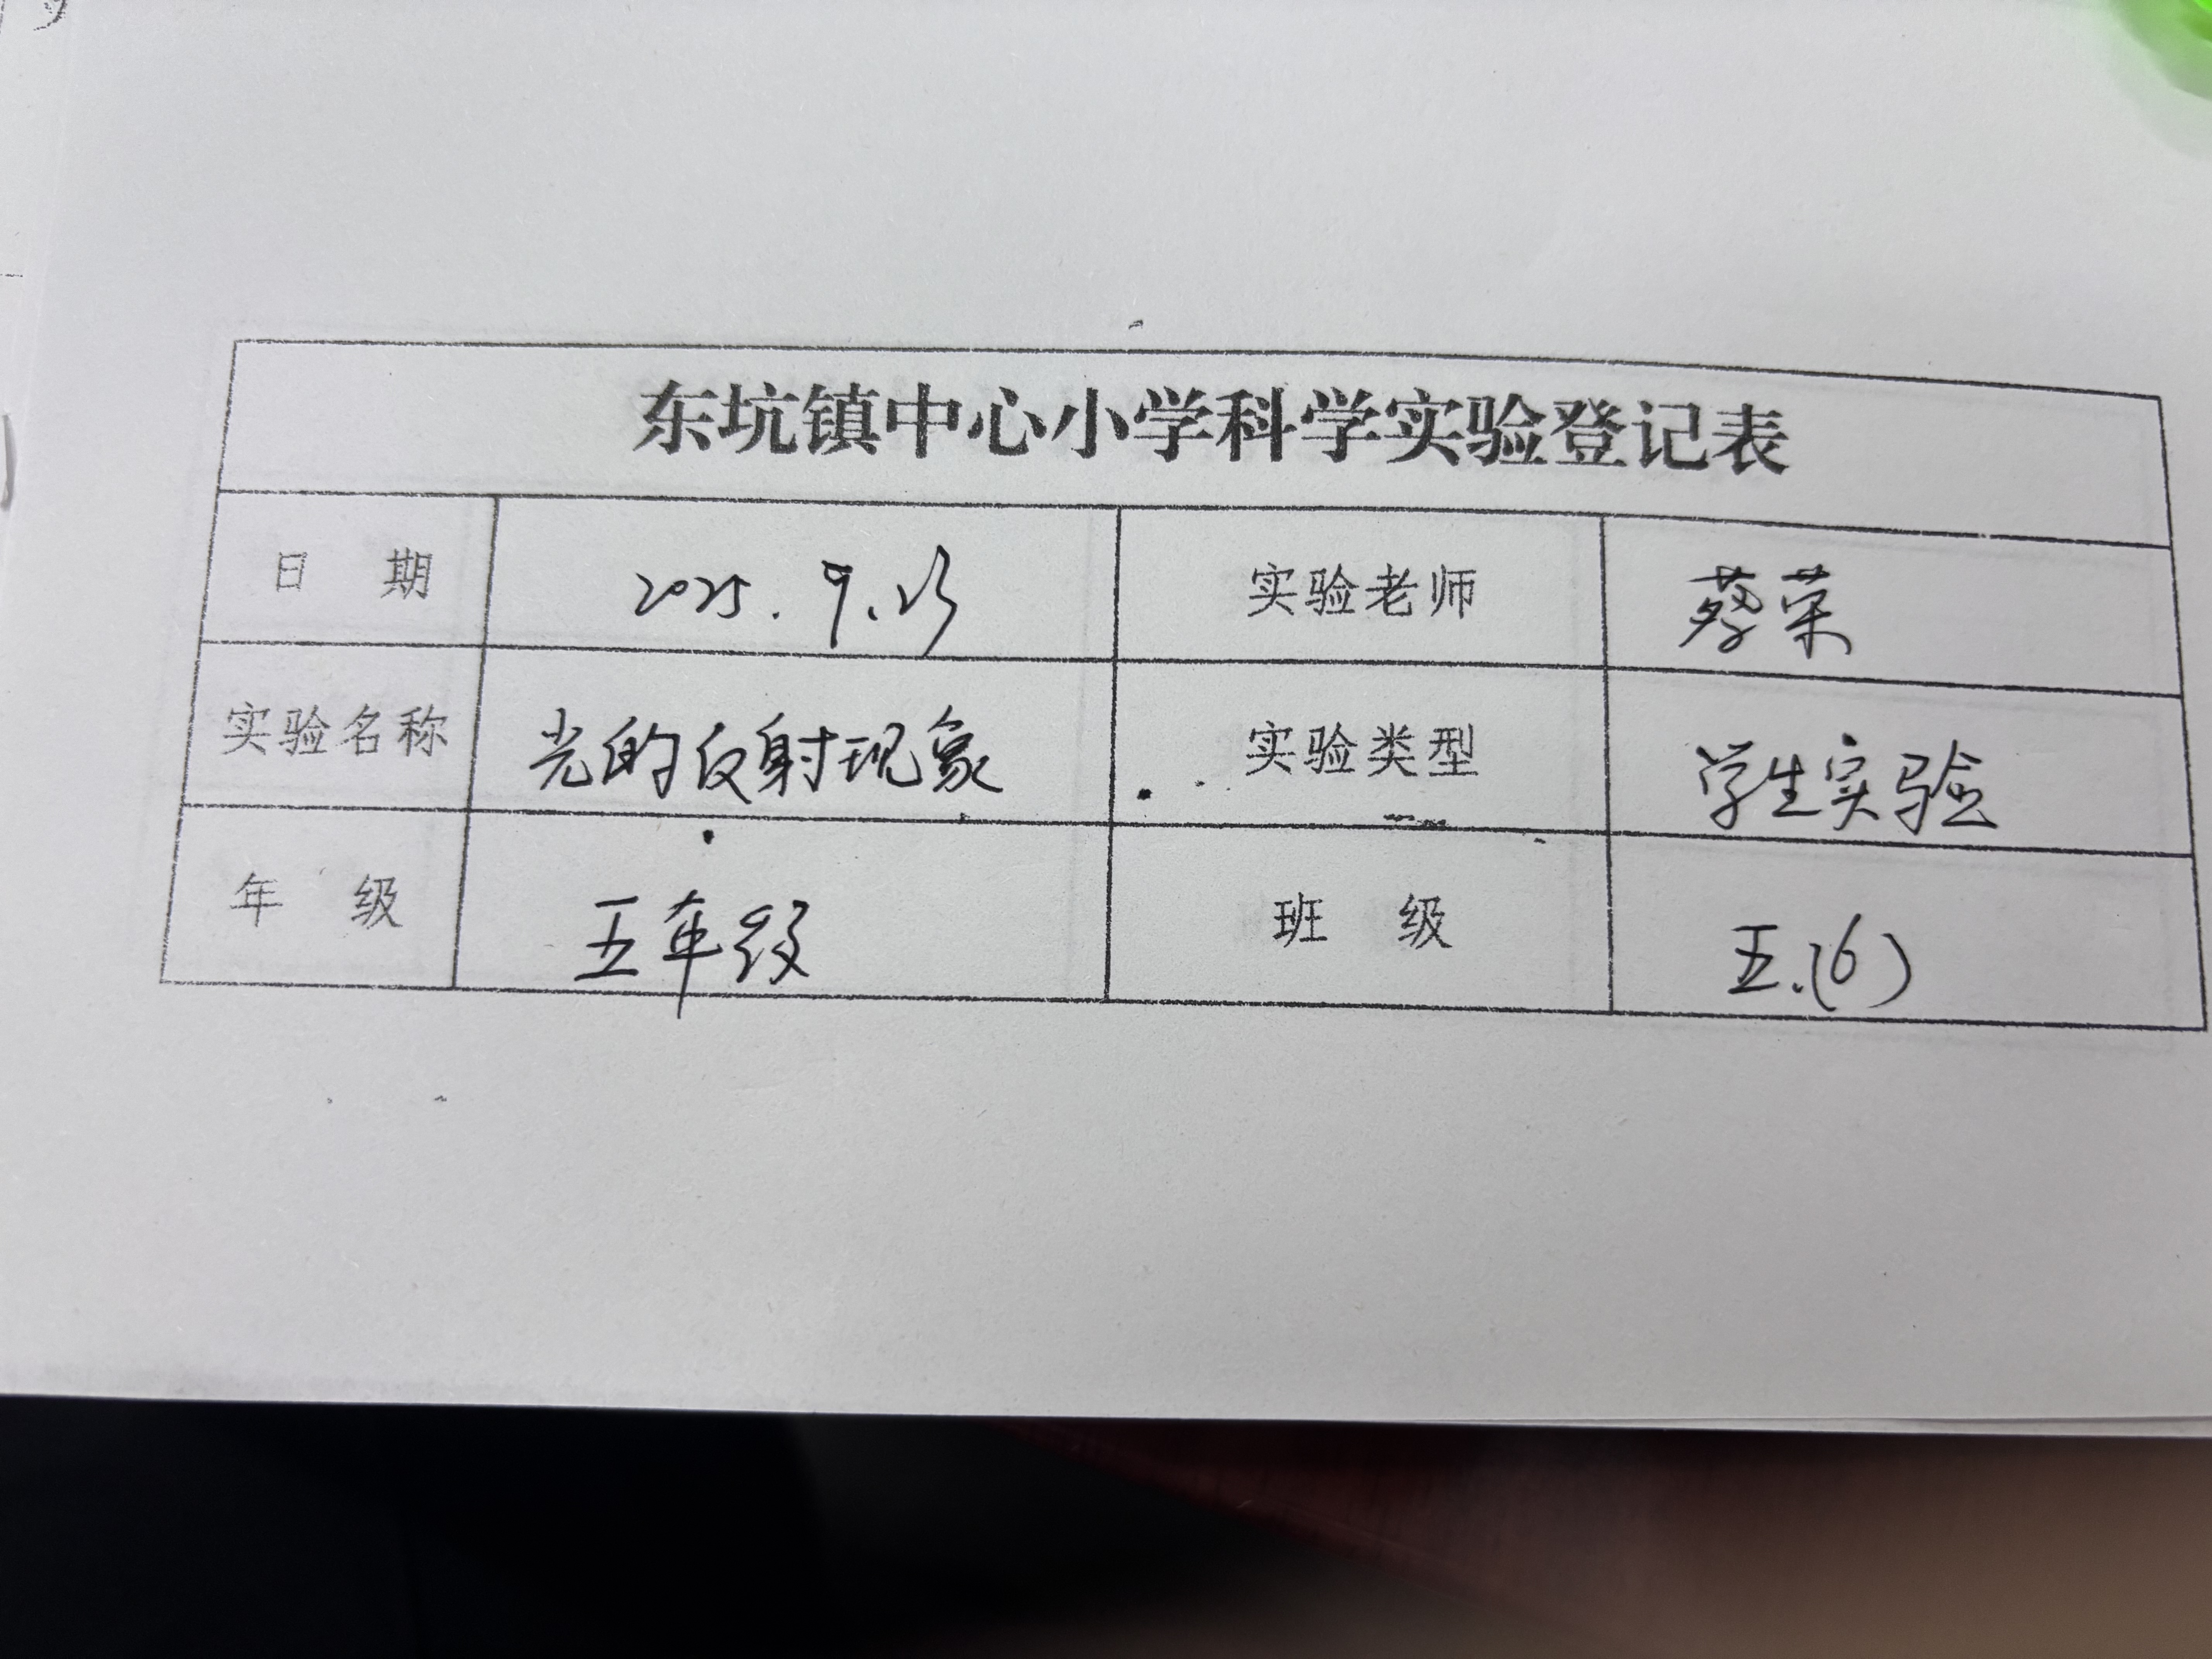 东坑镇中心小学科学实验登记表
日 期 2025.9.23 实验老师 蔡荣
实验名称 光的反射现象 实验类型 学生实验
年 级 五年级 班 级 五.(6)